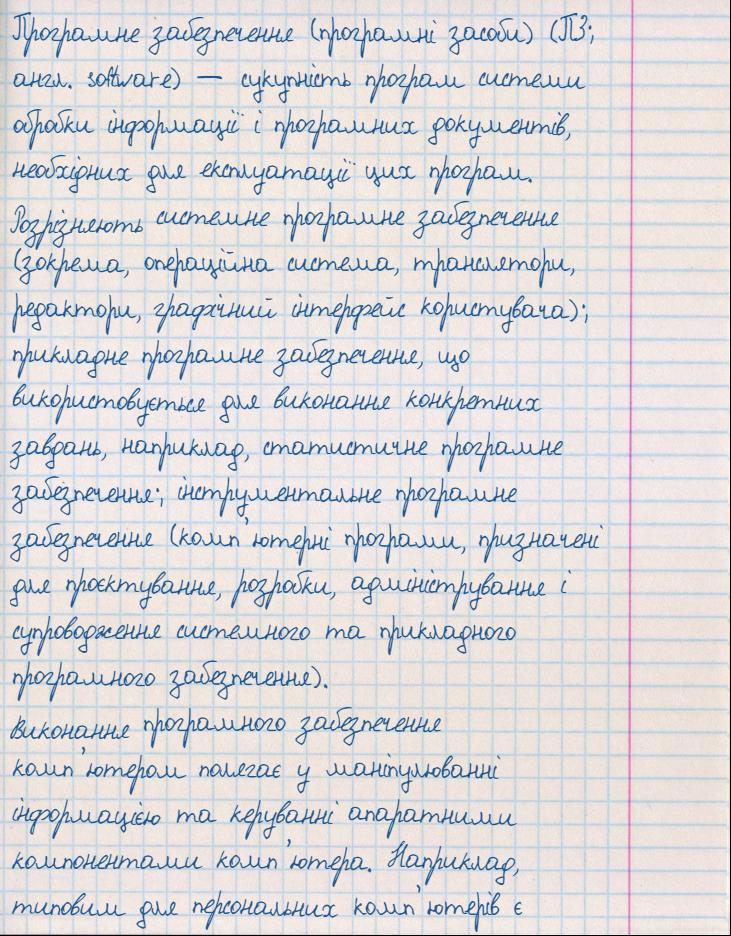 Програмне забезпечення (програмні засоби) (ПЗ;
англ. software) — сукупність програм системи
обробки інформації і програмних документів,
необхідних для експлуатації цих програм.
Розрізняють системне програмне забезпечення
(зокрема, операційна система, транслятори,
редактори, графічний інтерфейс користувача);
прикладне програмне забезпечення, що
використовується для виконання конкретних
завдань, наприклад, статистичне програмне
забезпечення; інструментальне програмне
забезпечення (комп'ютерні програми, призначені
для проєктування, розробки, адміністрування і
супроводження системного та прикладного
програмного забезпечення).
Виконання програмного забезпечення
комп'ютером полягає у маніпулюванні
інформацією та керуванні апаратними
компонентами комп'ютера. Наприклад,
типовим для персональних комп'ютерів є